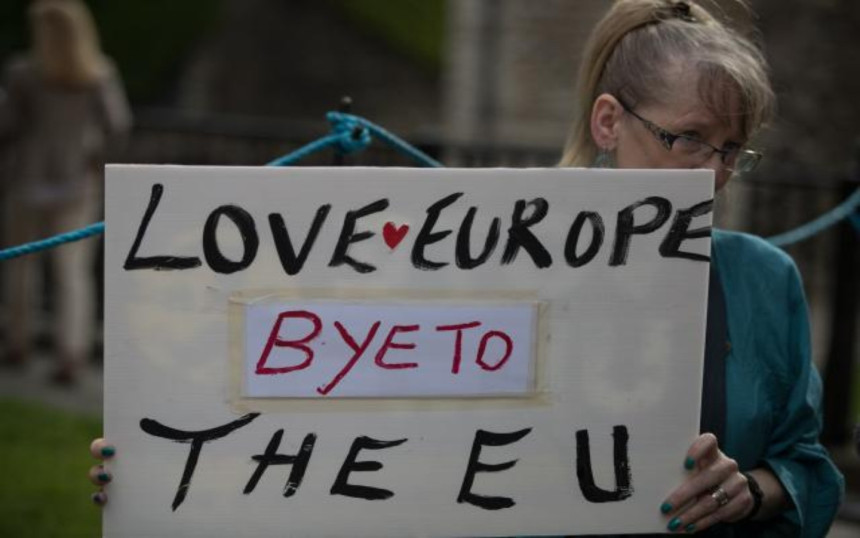 LOVE♥EUROPE
BYE TO
THE EU